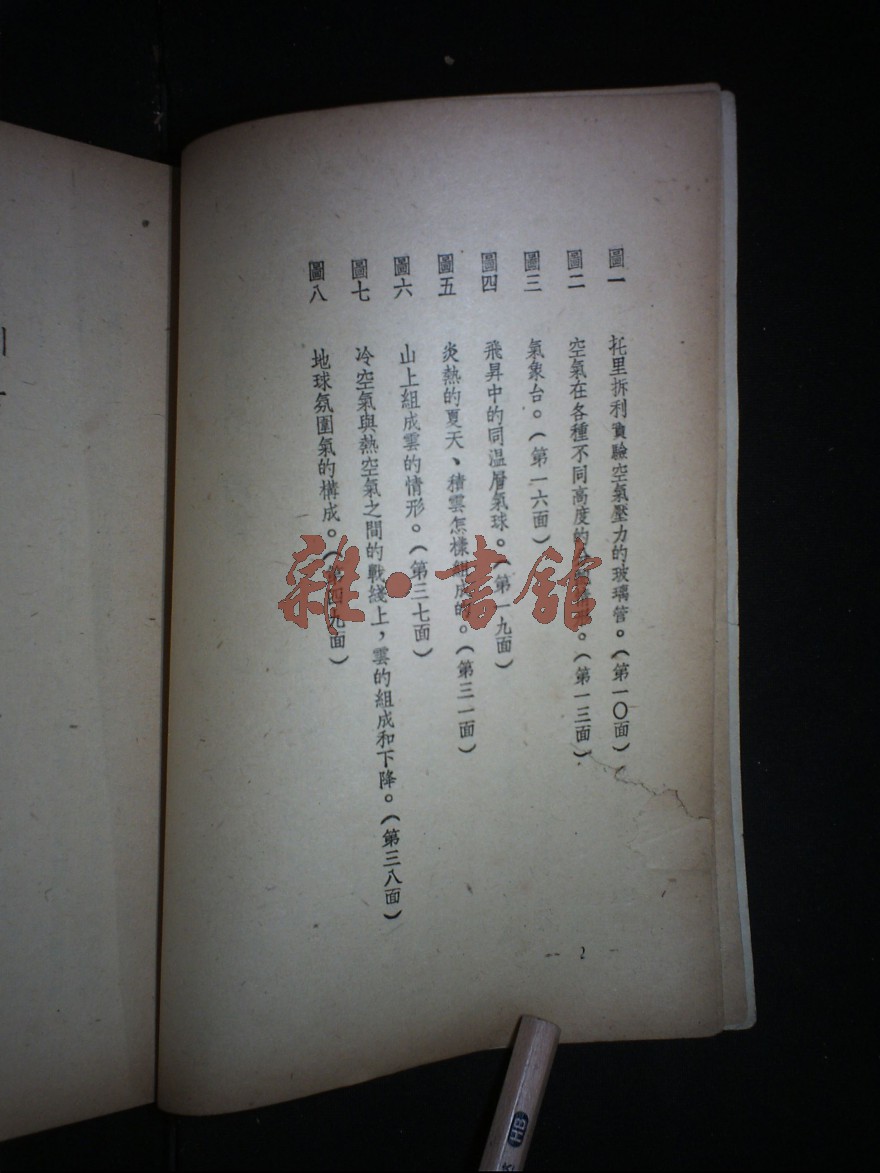 圖一 托里拆利實驗空氣壓力的玻璃管。(第一〇面)
圖二 空氣在各種不同高度的。(第一三面)
圖三 氣象台。(第一六面)
圖四 飛昇中的同温層氣球。(第一九面)
圖五 炎熱的夏天、積雲怎樣組成的。(第三一面)
圖六 山上組成雲的情形。(第三七面)
圖七 冷空氣與熱空氣之間的戰綫上,雲的組成和下降。(第三八面)
圖八 地球氛圍氣的構成。(第四九面)
— 2 —
雜·書館
HB